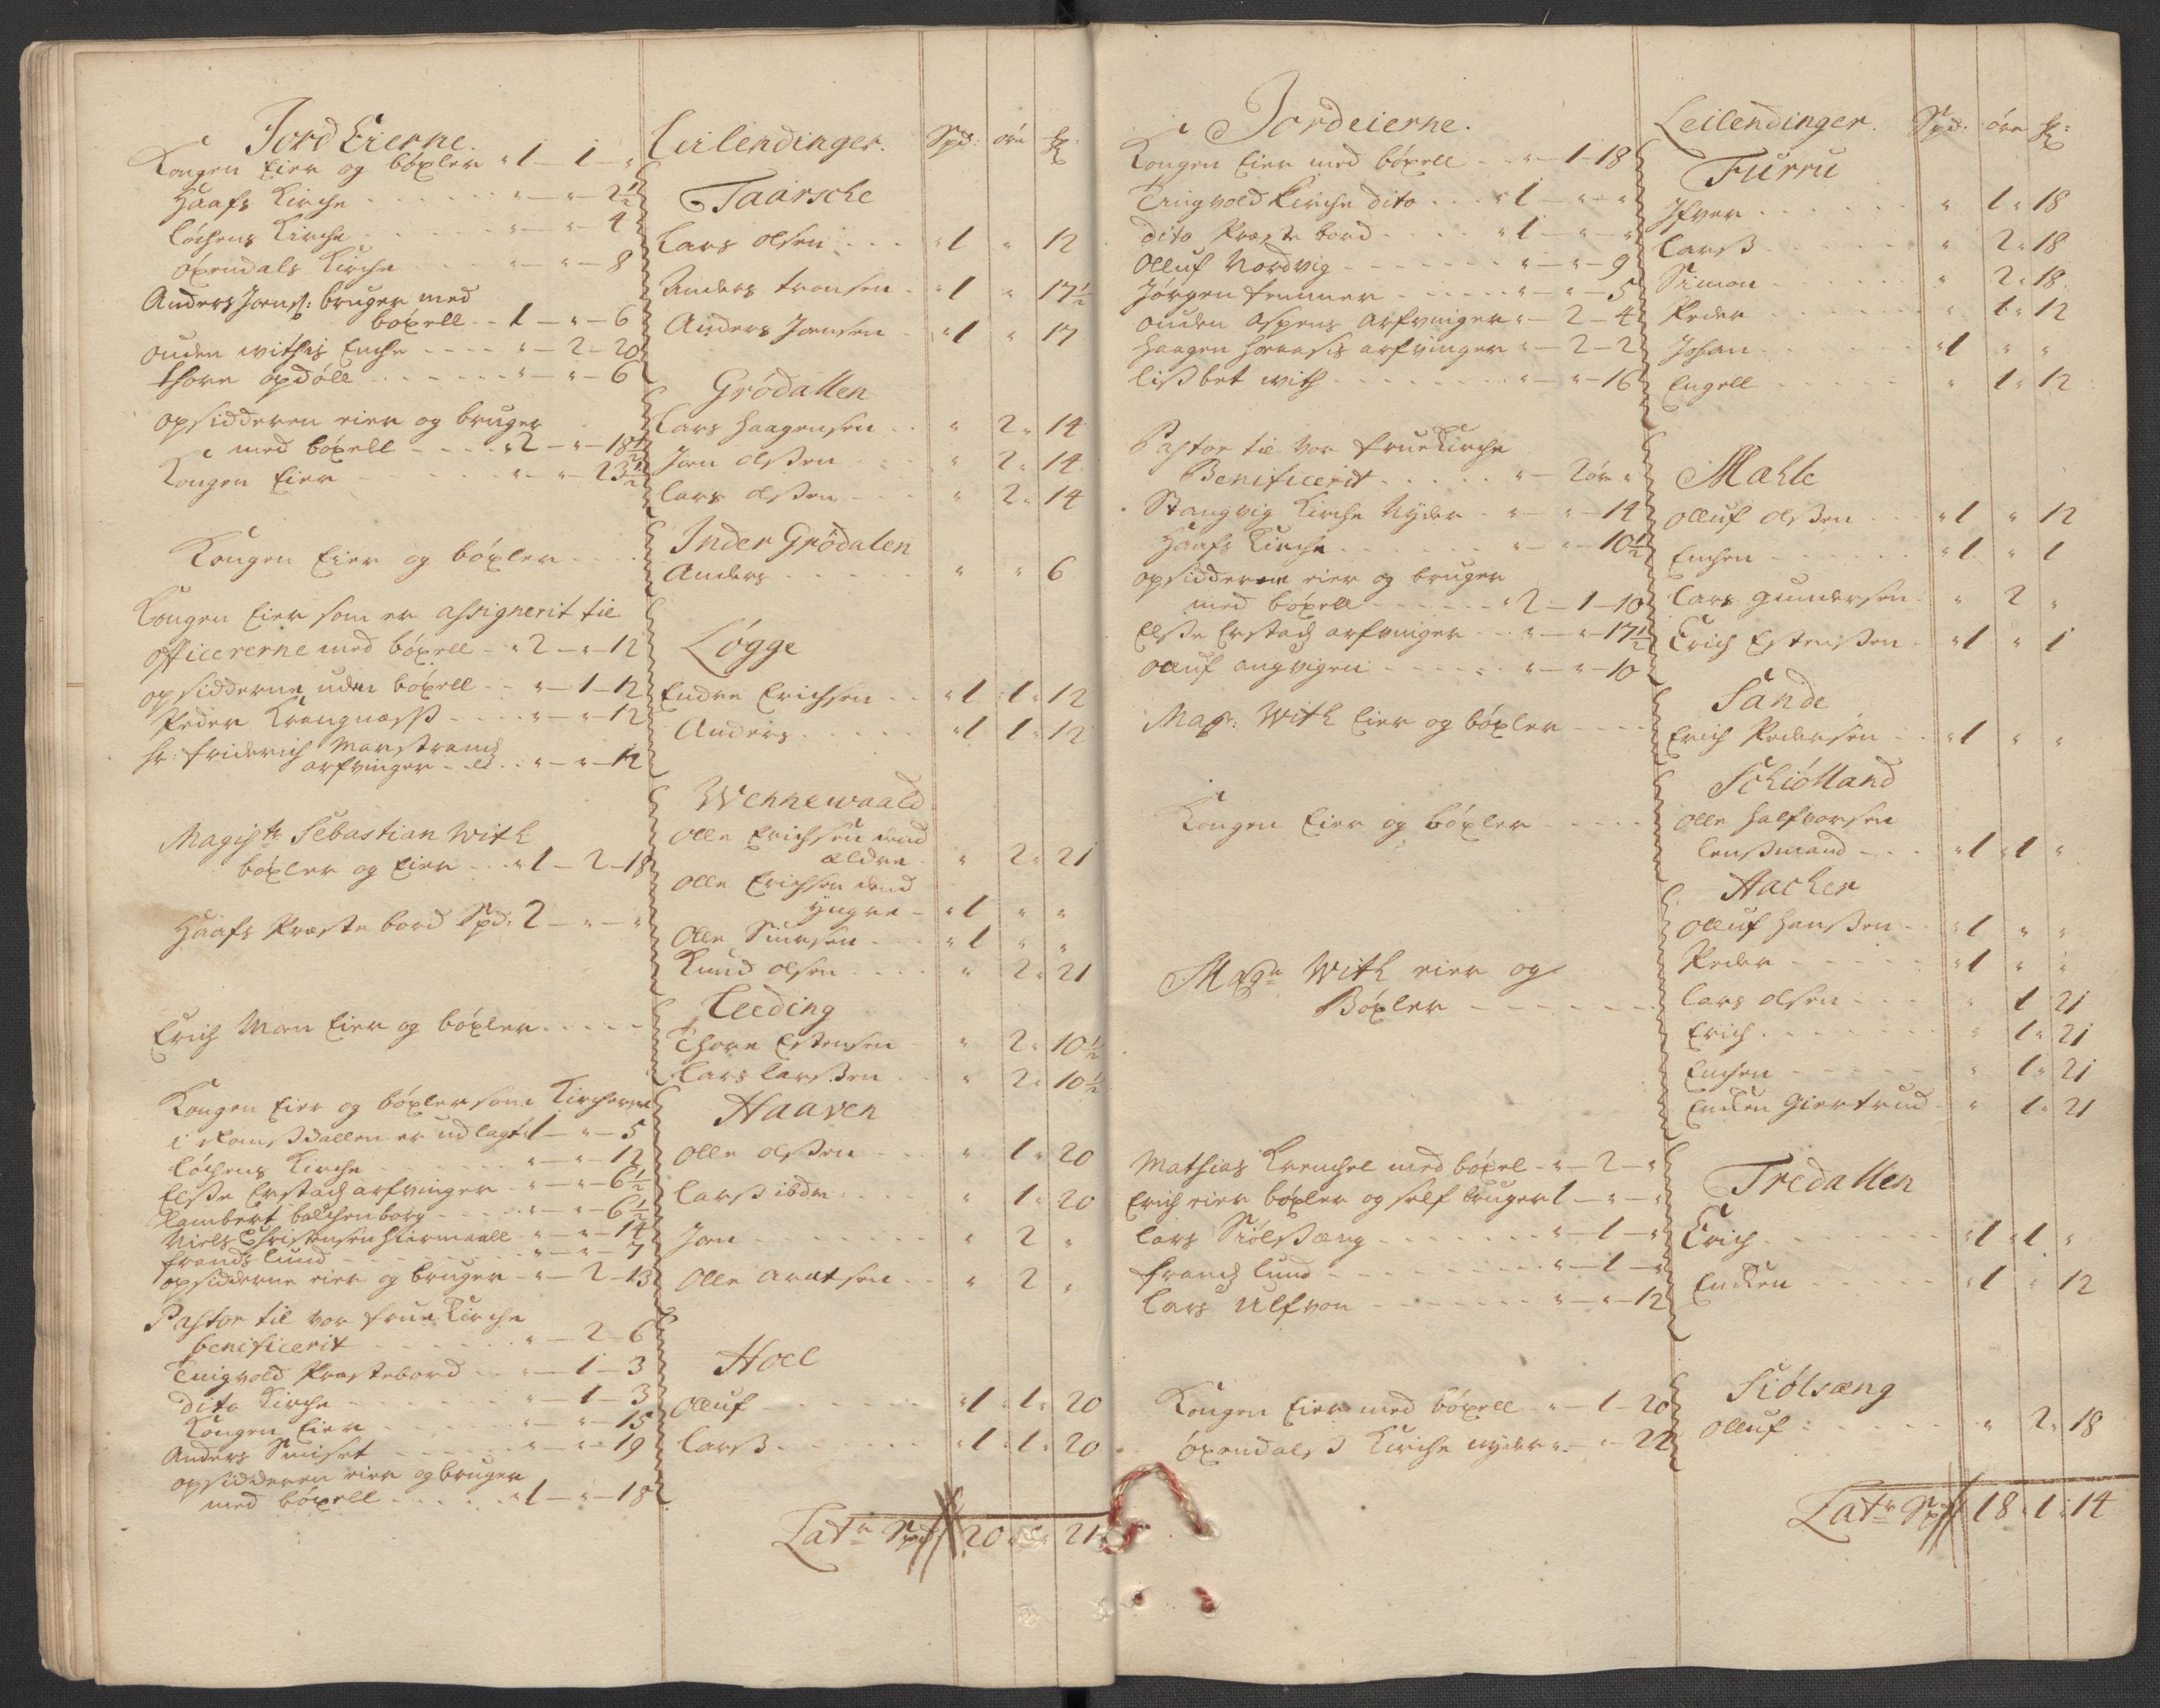 Jord Eierne.
Kongen Eier og böxler " 1 — 1 — "
Haafs Kirche " — " — 2½
Löchens Kirche " — " — 4
Öxendals Kirche " — " — 8
Anders Jonss: bruger med
böxell 1 — " — 6
ouden withis Enche " — 2 — 20
thore opdöll " — " — 6
opsidderen eier og bruger
med böxell " 2 — " — 18½
Kongen Eier " — " — 23½
Kongen Eier og böxler
Kongen Eier som er assignerit til
officererne med böxell " 2 — " — 12
opsidderne uden böxell " — 1 — 12
Peder Krangnæss " — " — 12
hr: friderich Marstrand
arfvinger " — " — 12
Magistr Sebastian With
böxler og Eier " 1 — 2 — 18
Haafs Præste bord Spd: 2 — " — "
Erich Mon Eier og böxler
Kongen Eier og böxler som Kircherne
i Romssdallen er udlagt 1 — " — 5
Löchens Kirche " — " — 12
Elsse Erstads arfvinger " — " — 6½
Lambert balchenborg " — " — 6½
Niels Christensen Hiermaall " — " — 14
frands lund " — " — 7
opsidderne eier og bruger " — 2 — 13
Pastor til vor frue Kirche
benificerit " — 2 — 6
Tingvold Præstebord " — 1 — 3
dito Kirche " — 1 — 3
Kongen Eier " — " — 15
Anders Smiset " — " — 19
opsidderen eier og bruger
med böxell " 1 — " — 18
Leilendinger. Spd: öre
Taarsche
Lars olsen " 1 " 12
Anders tronsen " 1 " 17½
Anders Jonsen " 1 " 17
Grödallen
Lars Haagensen " 2 " 14
Jon olssen " 2 " 14
Lars olssen " 2 " 14
Inder Grödalen
Anders " " 6
Lögge
Endre Erichsen " 1 " 1 " 12
Anders " 1 1 " 12
Wennewaald
Olle Erichsen dend
ældre " 2 " 21
Olle Erichsen dend
yngre " 1 " "
Olle Siursen " 1 " "
Knud olsen " 2 " 21
Leeding
Thore Estensen " 2 " 10½
Lars Larssen " 2 " 10½
Haaven
Olle olssen " 1 " 20
Larss ibdm " 1 " 20
Jon " 2 "
Olle arntsen " 2 "
Hoel
Olluf " 1 " 1 " 20
Larss " 1 " 1 " 20
Latr Spd 20 21
Jordeierne.
Kongen Eier med böxell " — 1 — 18
Tingvold Kirche dito " 1 — " — "
dito Præste bord " 1 — " — "
Olluf Nordvig " — " — 9
Jörgen femmer " — " — 5
ouden aspens arfvinger " — 2 — 4
Haagen arfvinger " — 2 — 2
lissbet with " — " — 16
Pastor til vor frue Kirche
Benificerit " — 2 ör "
Stangvig Kirche Nyder " — " — 14
Haafs Kirche " — " — 10½
opsidderne eier og bruger
med böxell " 2 — 1 — 10
Elsse Erstads arfvinger " — " — 17½
Olluf angvigen " — " — 10
Magr: With Eier og böxler
Kongen Eier og böxler
Magr With eier og
Böxler
Mathias Krenchel med böxel " — 2 — "
Erich eier böxler og self bruger 1 — " — "
Lars Siölssæng " — 1 — "
frands lund " — 1 — "
Lars Ulfvon " — " — 12
Kongen Eier med böxell " — 1 — 20
öxendals Kirche nyder " — " — 22
Leilendinger. Spd: öre
Furru
Ifver " 1 " 18
Larss " 2 " 18
Simon " 2 " 18
Peder " 1 " 12
Johan " 1 " "
Engell " 1 " 12
Mæhle
Olluf olssen " 1 " 12
Enchen " 1 " 1
Lars gundersen " 2 "
Erich Estenssen " 1 " 1
Sande
Erich Pedersen " 1 " "
Schiölland
Olle Halfvorsen
lenssmand " 1 " 1 "
Aacher
Olluf Hanssen " 1 " "
Peder " 1 " "
Lars olsen " 1 21
Erich " 1 " 21
Enchen " 1 " 21
Encken Giertrud " 1 " 21
Tredallen
Erich " 1 " 1 "
Encken " 1 " 12
Siölsæng
Olluf " 2 " 18
Latr Spd 18 " 1 " 14